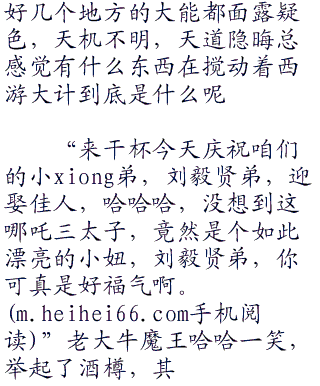 好几个地方的大能都面露疑
色，天机不明，天道隐晦总
感觉有什么东西在搅动着西
游大计到底是什么呢
“来干杯今天庆祝咱们
的小xiong弟，刘毅贤弟，迎
娶佳人，哈哈哈，没想到这
哪吒三太子，竟然是个如此
漂亮的小妞，刘毅贤弟，你
可真是好福气啊。
(m.heihei66.com手机阅
读)”老大牛魔王哈哈一笑，
举起了酒樽，其